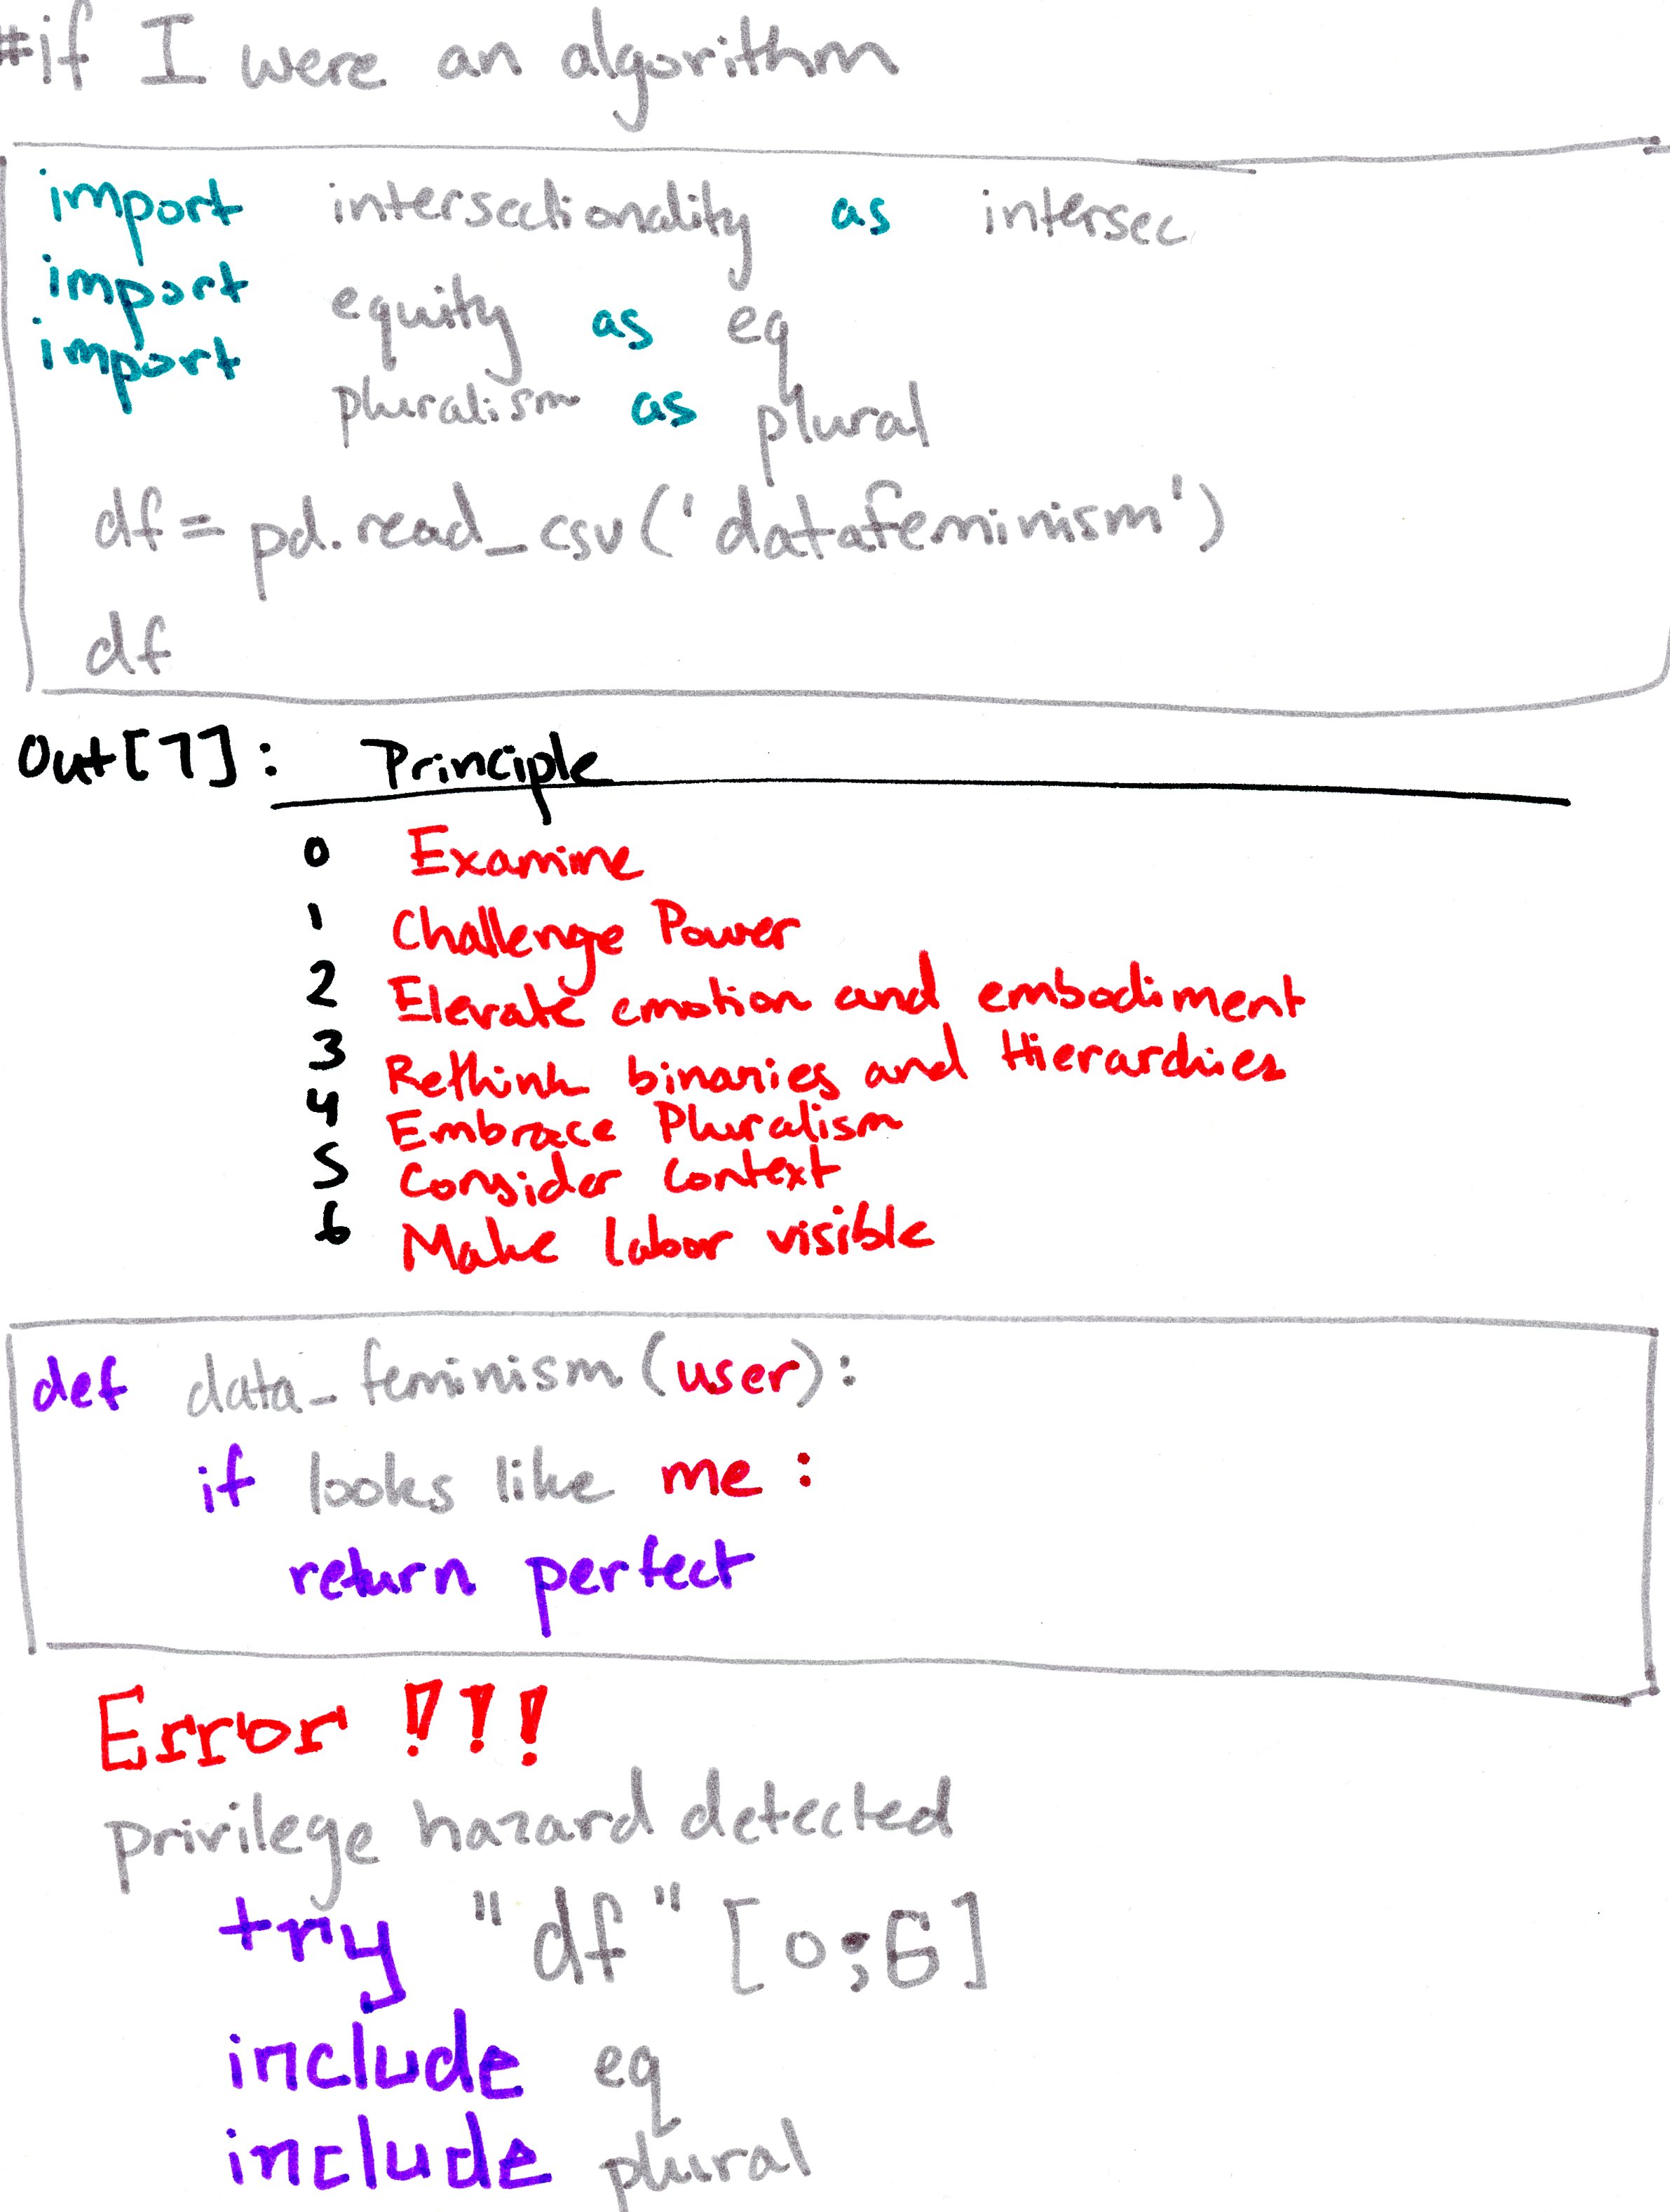 #if I were an algorithm
import intersectionality as intersec
import equity as eq
import pluralism as plural
df = pd.read_csv('datafeminism')
df
Out[7]: Principle
0 Examine
1 Challenge Power
2 Elevate emotion and embodiment
3 Rethink binaries and Hierarchies
4 Embrace Pluralism
5 Consider Context
6 Make labor visible
def data_feminism(user):
if looks like me:
return perfect
Error !!!
privilege hazard detected
try "df" [0;6]
include eq
include plural